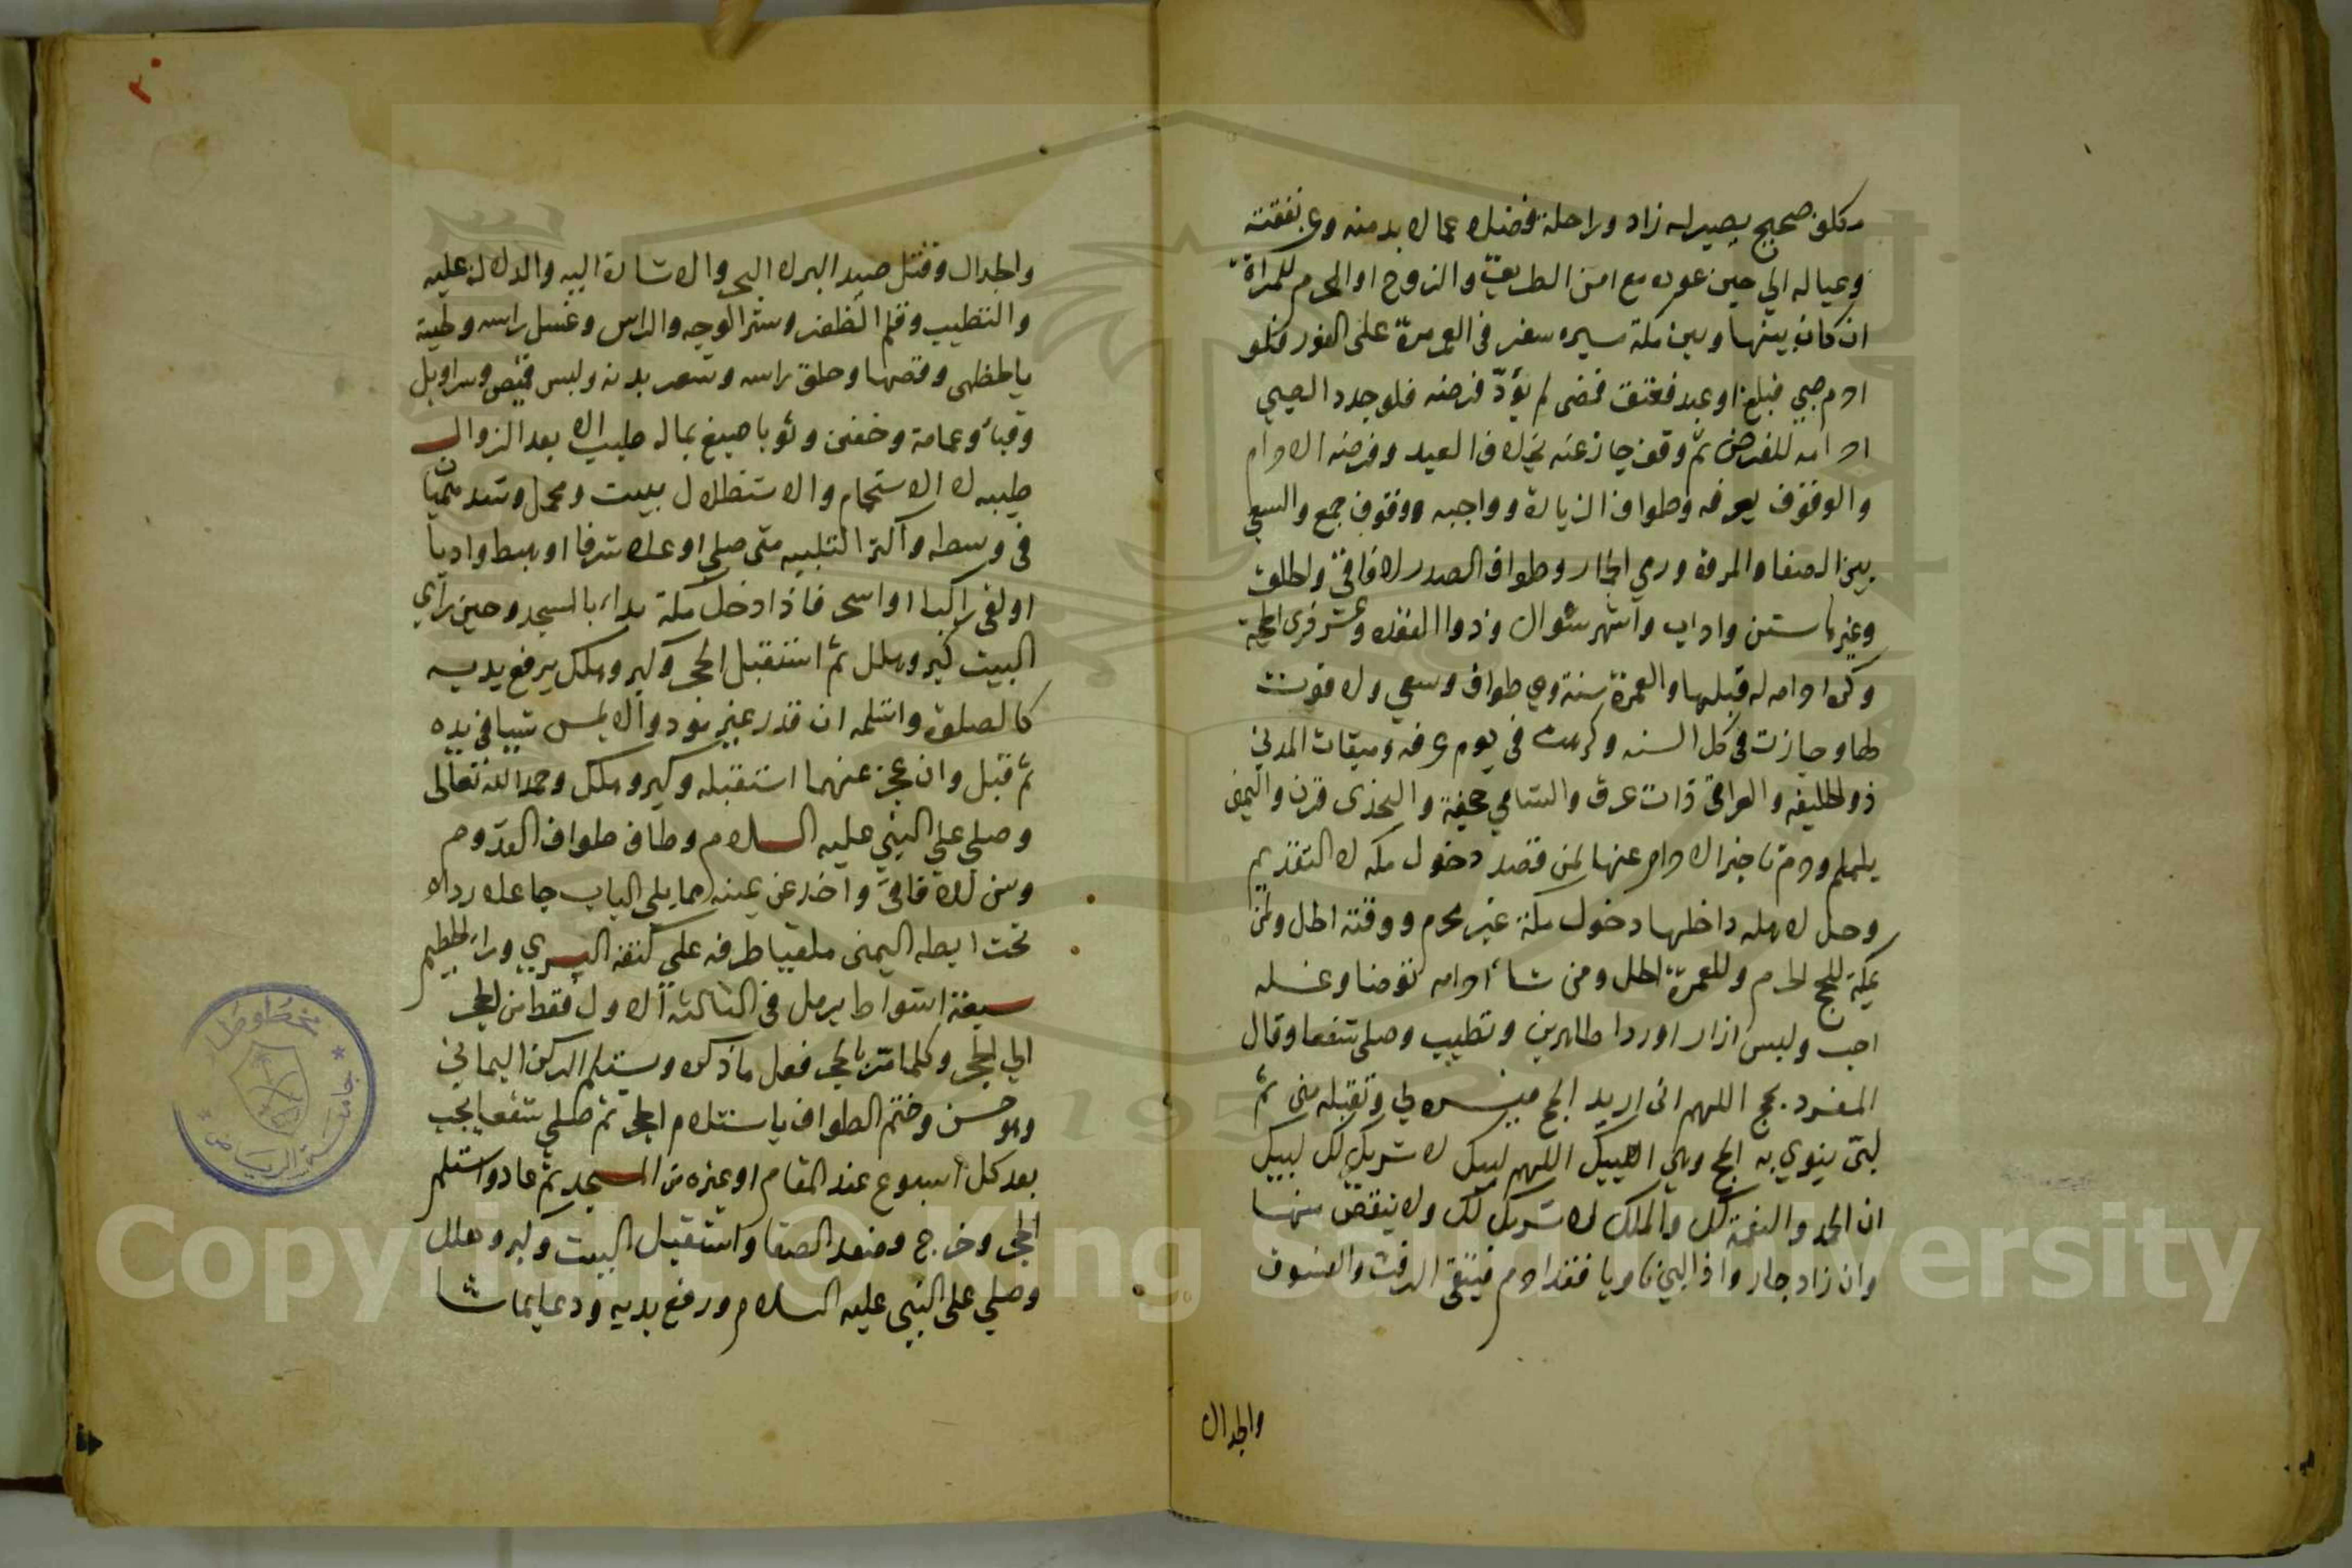 مكلف صحيح بصير له زاد وراحلة فضلا عما لا بد منه وعن نفقته
وعياله الي حين عوده مع امن الطريق والزوج او المحرم للمراة
ان كان بينها وبين مكة مسيره سفر في العمر مرة على الفور فلو
احرم صبي فبلغ او عبد فعتق فمضى لم يؤد فرضه فلو جدد الصبي
احرامه للفرض ثم وقف جاز عنه بخلاف العبد وفرضه الاحرام
والوقوف بعرفه وطواف الزيارة وواجبه وقوف جمع والسعي
بين الصفا والمروة ورمي الجمار وطواف الصدر للافاقي والحلق
وغيرها سنن واداب واشهره شوال وذوا القعده وعشر ذى الحجة
وكره احرامه له قبلها والعمرة سنة وهي طواف وسعي ولا فوت
لها وجازت في كل السنه وكرهت في يوم عرفه وميقات المدني
ذو الحليفه والعراقي ذات عرق والشامي جحفة والنجدى قرن واليمني
يلملم وحرم تاخير الاحرام عنها لمن قصد دخول مكه لا التقديم
وحل لاهله داخلها دخول مكة غير محرم ووقته الحل ولمن
بمكة للحج الحرم وللعمرة الحل ومن شاء احرامه توضا وغسله
احب ولبس ازار اوردا طاهرين وتطيب وصلى شفعا وقال
المفرد بحج اللهم انى اريد الحج فيسره لي وتقبله منى ثم
لبى ينوي به الحج وهي لبيك اللهم لبيك لا شريك لك لبيك
ان الحمد والنعمة لك والملك لا شريك لك ولا ينقص منها
وان زاد جاز واذا لبى ناويا فقد احرم فيتقي الرفث والفسوق
والجدال
٣٠
والجدال وقتل صيد البر لا البحر والاشارة اليه والدلالة عليه
والتطيب وقلم الظفر وستر الوجه والراس وغسل راسه ولحيته
بالخطمى وقصها وحلق راسه وشعر بدنه ولبس قميص وسراويل
وقباء وعمامة وخفين وثوبا صبغ بماله طيب الا بعد الزوال
طيبه لا الاستحمام والاستظلال ببيت ومحمل وشد هميان
في وسطه واكثر التلبيه متى صلى او علا شرفا او هبط واديا
او لقى راكبا او اسحر فاذا دخل مكة بداء بالمسجد وحين راي
البيت كبر وهلل ثم استقبل الحجر وكبر وهلل يرفع يديه
كالصلوة واستلمه ان قدر غير مؤذ والا يمس شيئا في يده
ثم قبل وان عجز عنهما استقبله وكبر وهلل وحمد الله تعالى
وصلى على النبي عليه السلام وطاف طواف القدوم
وسن للافاقي واخذ عن يمينه مما يلي الباب جاعلا رداه
تحت ابطه اليمنى ملقيا طرفه على كتفه اليسري وراء الحطيم
سبعة اشواط يرمل في الثلاثه الاول فقط من الحجر
الي الحجر وكلما مر بالحجر فعل ما ذكره ويستلم الركن اليماني
وهو حسن وختم الطواف باستلام الحجر ثم صلى شفعا يجب
بعد كل اسبوع عند المقام او غيره من المسجد ثم عاد واستلم
الحجر وخرج وصعد الصفا واستقبل البيت وكبر وهلل
وصلى على النبي عليه السلام ورفع يديه ودعا بما شا
مخطوطات
جامعة الرياض
Copyright © King Saud University
195